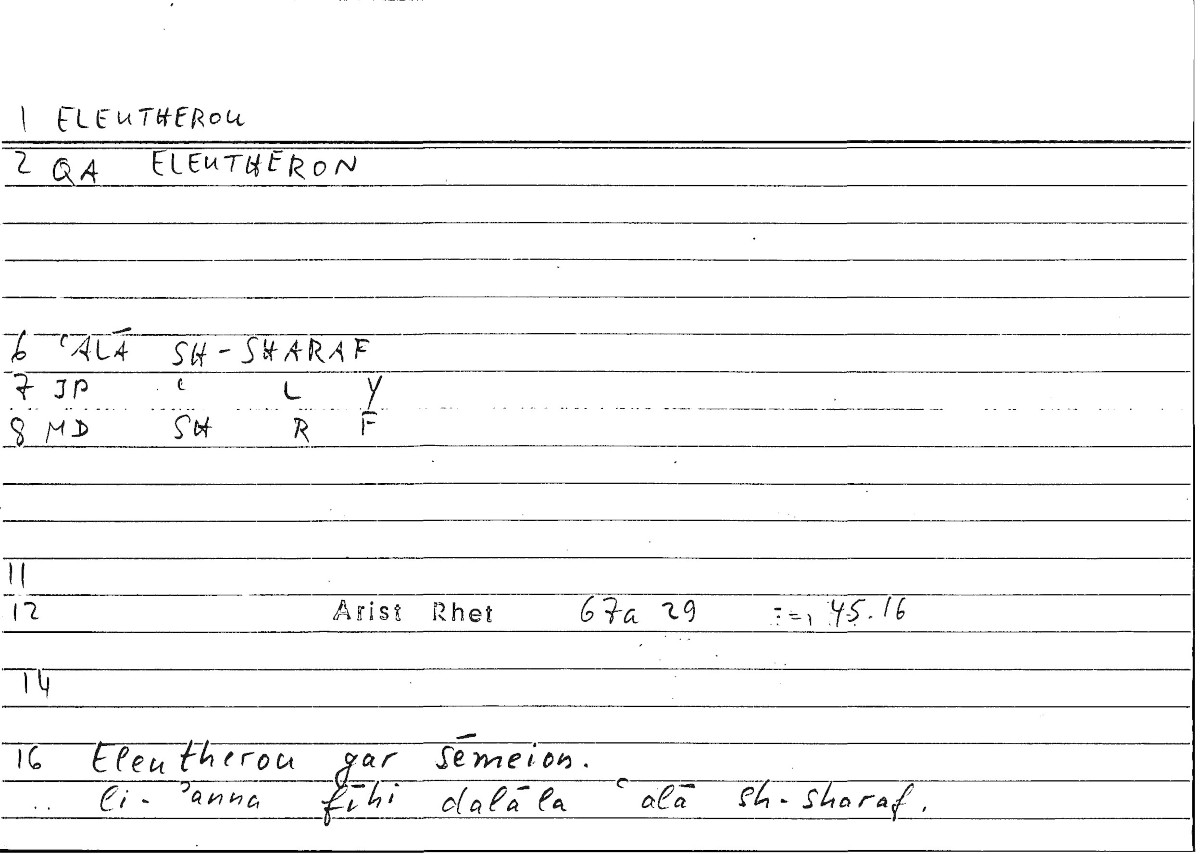 1 ELEUTHEROU
2 QA ELEUTHERON
6 ʿALĀ SH-SHARAF
7 JP ʿ L Y
8 MD SH R F
11
12 Arist Rhet 67a 29 :=, 45.16
14
16 Eleutherou gar sēmeion.
li-ʾanna fīhi dalāla ʿalā sh-sharaf.